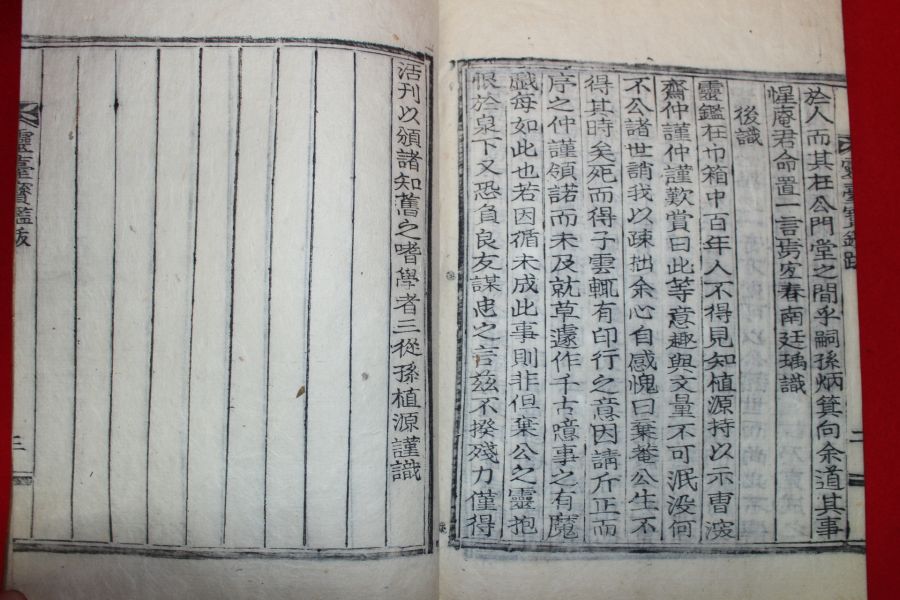 於人而其在公門堂之間乎嗣孫炳箕向余道其事
惺庵君命置一言
春南廷瑀識
後識
靈鑑在巾箱中百年人不得見知植源持以示曺深
齋仲謹仲謹歎賞曰此等意趣與文量不可泯没何
不公諸世誚我以疎拙余心自感愧曰棄菴公生不
得其時矣死而得子雲輒有印行之意因請斤正而
序之仲謹領諾而未及就草遽作千古噫事之有魔
戱每如此也若因循未成此事則非但棄公之靈抱
恨於泉下又恐負良友謀忠之言玆不揆殘力僅得
活刊以頒諸知舊之嗜學者三從孫植源謹識
靈臺寶鑑跋
二
靈臺寶鑑跋
三